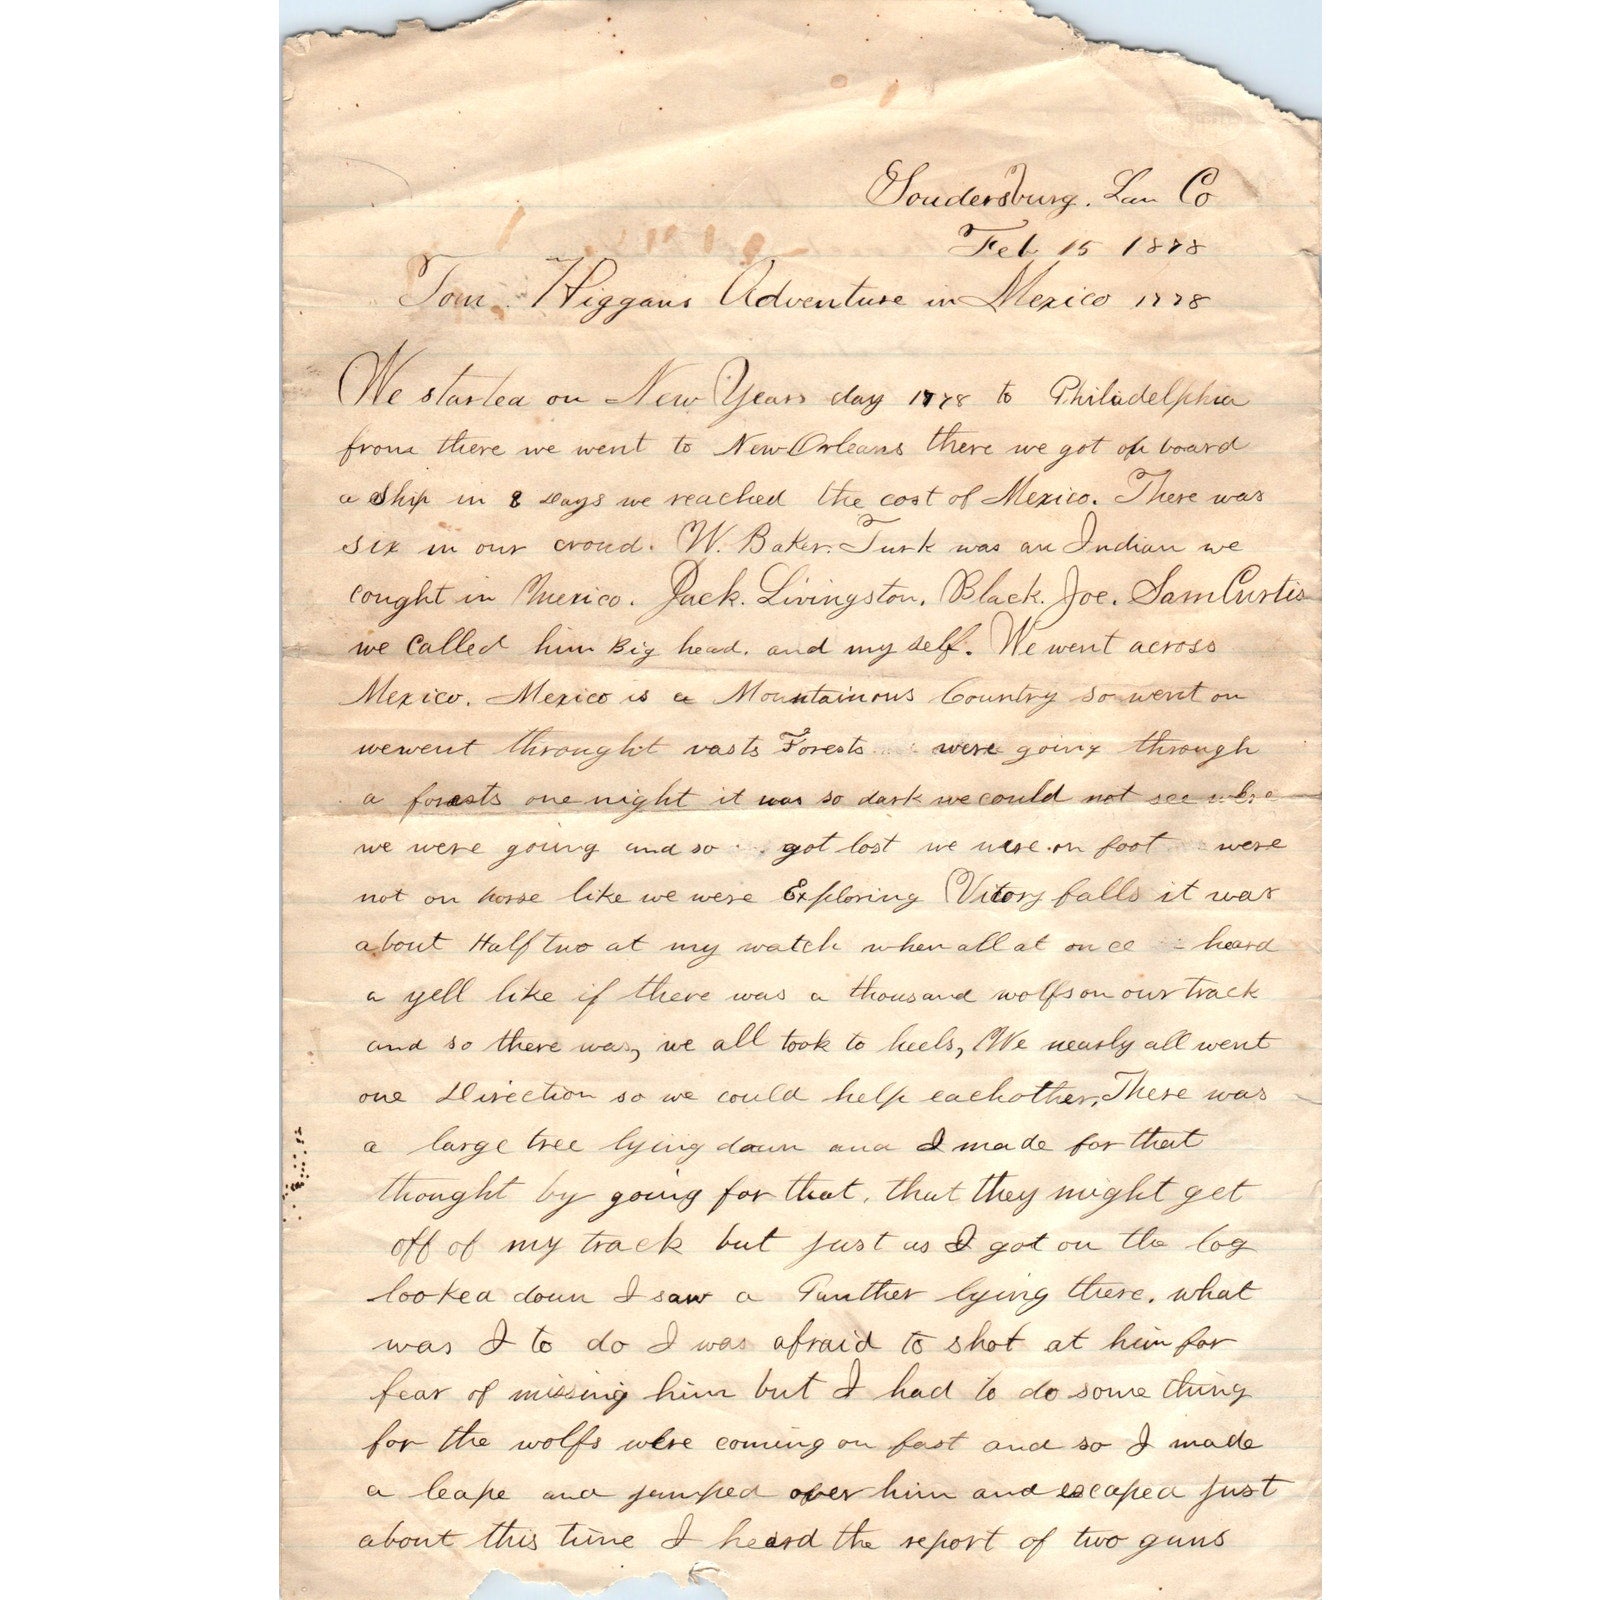 Soudersburg. Lan Co
Feb 15 1878
Tom. Higgans Adventure in Mexico 1778
We started on New Years day 1778 to Philadelphia
from there we went to New Orleans there we got on board
a ship in 8 Days we reached the cost of Mexico. There was
six in our croud. W. Baker. Turk was an Indian we
cought in Mexico. Jack. Livingston. Black. Joe. Sam Curtis
we called him Big head. and my self. We went across
Mexico. Mexico is a Mountainous Country so went on
wewent throught vasts Forests were going through
a forests one night it was so dark we could not see where
we were going and so got lost we were on foot were
not on horse like we were Exploring Vitory falls it was
about Half two at my watch when all at once heard
a yell like if there was a thousand wolfs on our track
and so there was, we all took to heels, We nearly all went
one Direction so we could help eachother, There was
a large tree lying down and I made for that
thought by going for that. that they might get
off of my track but just as I got on the log
looked down I saw a Panther lying there. what
was I to do I was afraid to shot at him for
fear of missing him but I had to do some thing
for the wolfs were coming on fast and so I made
a leape and jumped over him and escaped just
about this time I heard the report of two guns